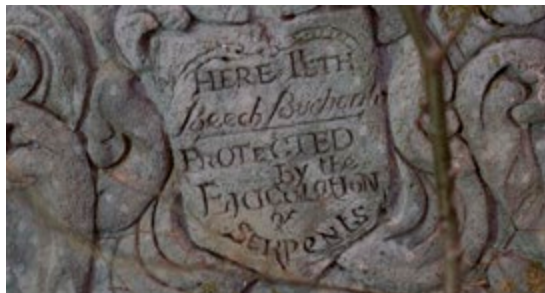 HERE LIETH
Beech Buchanan
PROTECTED
by the
EJACULATION
OF
SERPENTS